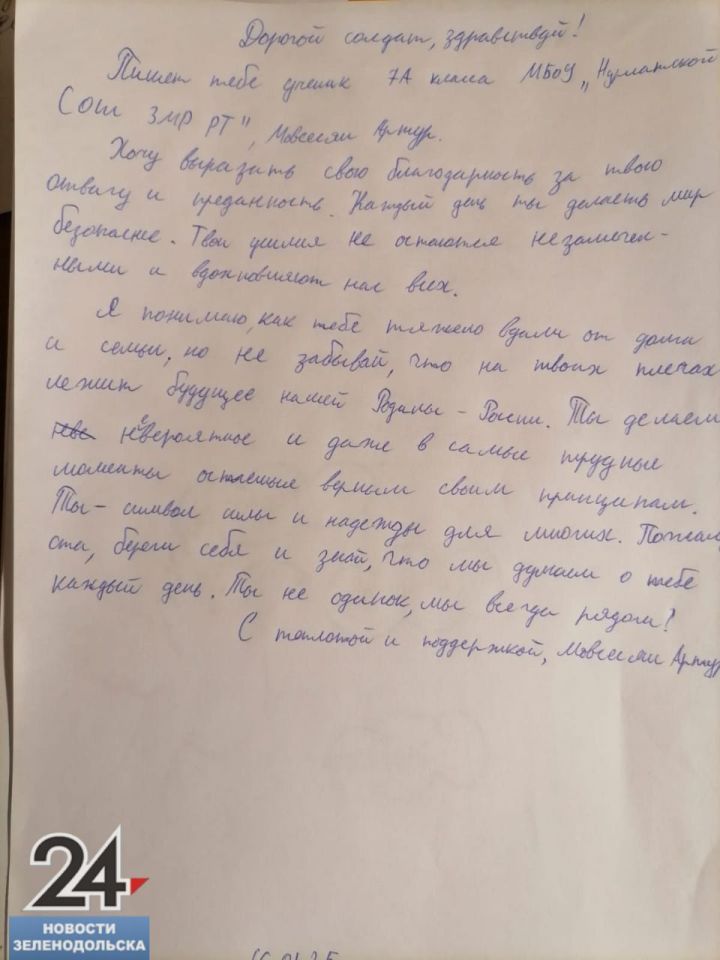 Дорогой солдат, здравствуй!
Пишет тебе ученик 7А класса МБОУ "Нурлатской
СОШ ЗМР РТ", Мовсесян Артур.
Хочу выразить свою благодарность за твою
отвагу и преданность. Каждый день ты делаешь мир
безопаснее. Твои усилия не остаются незамечен-
ными и вдохновляют нас всех.
Я понимаю, как тебе тяжело вдали от дома
и семьи, но не забывай, что на твоих плечах
лежит будущее нашей Родины - России. Ты делаешь
невероятное и даже в самые трудные
моменты остаешься верным своим принципам.
Ты - символ силы и надежды для многих. Пожалуй
ста, береги себя и знай, что мы думаем о тебе
каждый день. Ты не одинок, мы всегда рядом!
С теплотой и поддержкой, Мовсесян Артур
24
НОВОСТИ
ЗЕЛЕНОДОЛЬСКА